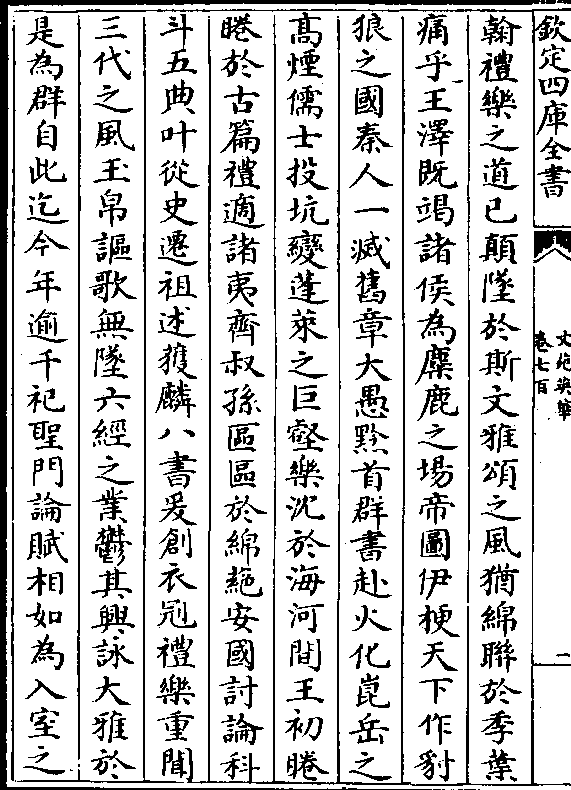 欽定四庫全書
文苑英華
卷七百
一
翰禮樂之道已顛墜於斯文雅頌之風猶綿聯於季葉
痛乎王澤既竭諸侯為麋鹿之場帝圖伊梗天下作豺
狼之國秦人一滅舊章大愚黔首群書赴火化崑岳之
髙煙儒士投坑變蓬萊之巨壑樂沈於海河間王初睠
睠於古篇禮適諸夷齊叔孫區區於綿蕝安國討論科
斗五典叶從史遷祖述獲麟八書爰創衣冠禮樂重聞
三代之風玉帛謳歌無墜六經之業鬱其興詠大雅於
是為群自此迄今年逾千祀聖門論賦相如為入室之